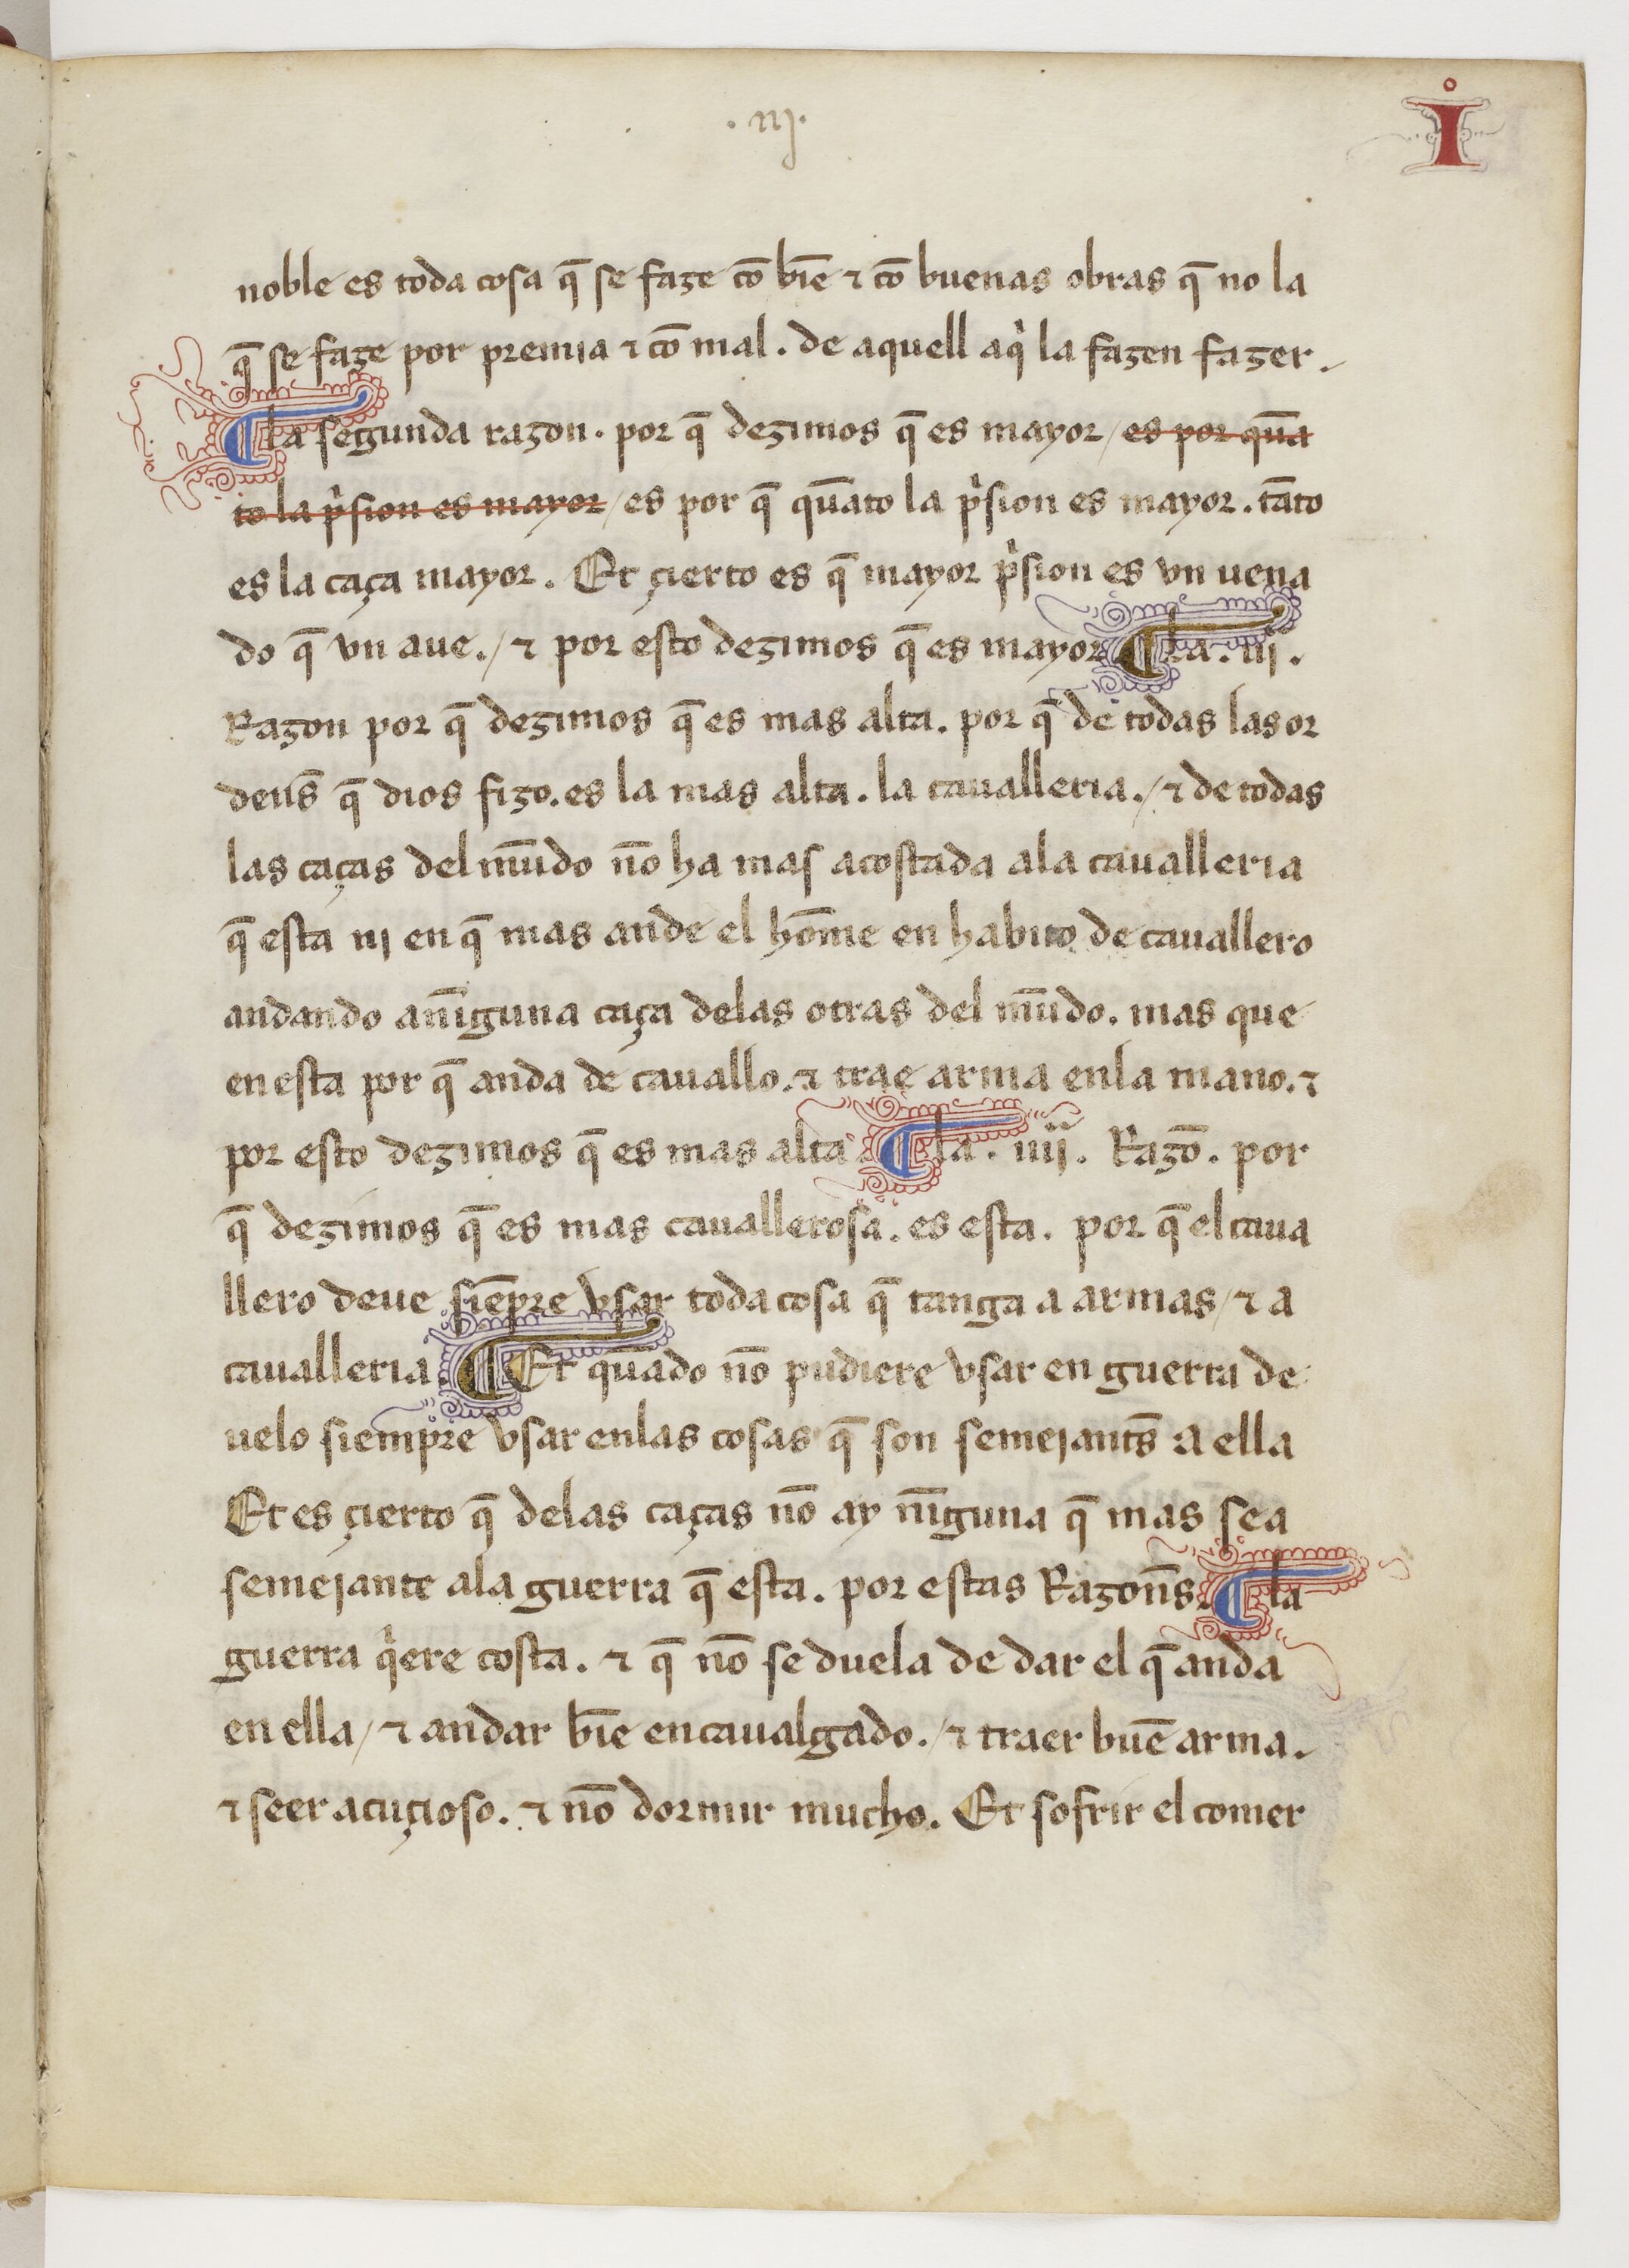 .iij.
I
noble es toda cosa q̄ se faze cō biē ⁊ cō buenas obras q̄ no la
q̄ se faze por premia ⁊ cō mal . de aquell aq̇ la fazen fazer .
¶ la segunda razon . por q̄ dezimos q̄ es mayor / es por quā
to la pͥsion es mayor / es por q̄ quāto la pͥsion es mayor . tāto
es la caça mayor . Et çierto es q̄ mayor pͥsion es vn uena
do q̄ vn aue . / ⁊ por esto dezimos q̄ es mayor ¶ la . iij .
Razon por q̄ dezimos q̄ es mas alta . por q̄ de todas las or
den̄s q̄ dios fizo . es la mas alta . la caualleria . / ⁊ de todas
las caças del mūdo nō ha mas acostada ala caualleria
q̄ esta ni en q̄ mas ande el hōme en habito de cauallero
andando an̄iguna caça delas otras del mūdo . mas que
en esta por q̄ anda de cauallo . ⁊ trae arma enla mano . ⁊
por esto dezimos q̄ es mas alta ¶ la . iiij . Razō . por
q̄ dezimos q̄ es mas cauallerosa . es esta . por q̄ el caua
llero deue siēpre vsar toda cosa q̄ tanga a armas / ⁊ a
caualleria . ¶ Et quādo nō pudiere vsar en guerra de
uelo siempre vsar enlas cosas q̄ son semejant̄s a ella
Et es çierto q̄ delas caças nō ay n̄iguna q̄ mas sea
semejante ala guerra q̄ esta . por estas Razon̄s . ¶ la
guerra qͥere costa . ⁊ q̄ nō se duela de dar el q̄ anda
en ella / ⁊ andar biē encaualgado . / ⁊ traer buē arma .
⁊ seer acuçioso . ⁊ nō dormir mucho . Et sofrir el comer